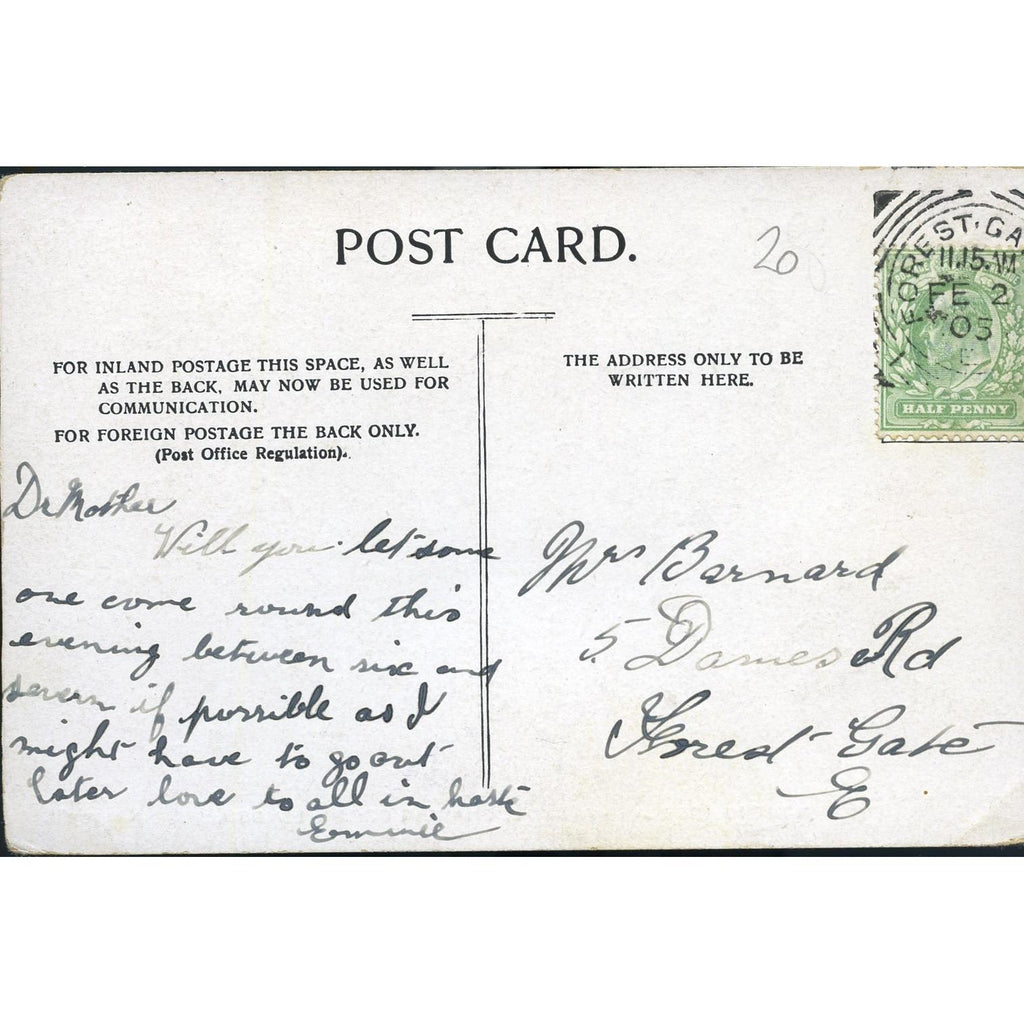 POST CARD.
20
FOR INLAND POSTAGE THIS SPACE, AS WELL
AS THE BACK, MAY NOW BE USED FOR
COMMUNICATION.
FOR FOREIGN POSTAGE THE BACK ONLY.
(Post Office Regulation).
THE ADDRESS ONLY TO BE
WRITTEN HERE.
FOREST GA
11.15 AM
FE 2
05
E
HALF PENNY
Dr Mother
Will you let some
one come round this
evening between six and
seven if possible as I
might have to go out
later love to all in haste
Emmie
Mrs Barnard
5. Dames Rd
Forest Gate
E